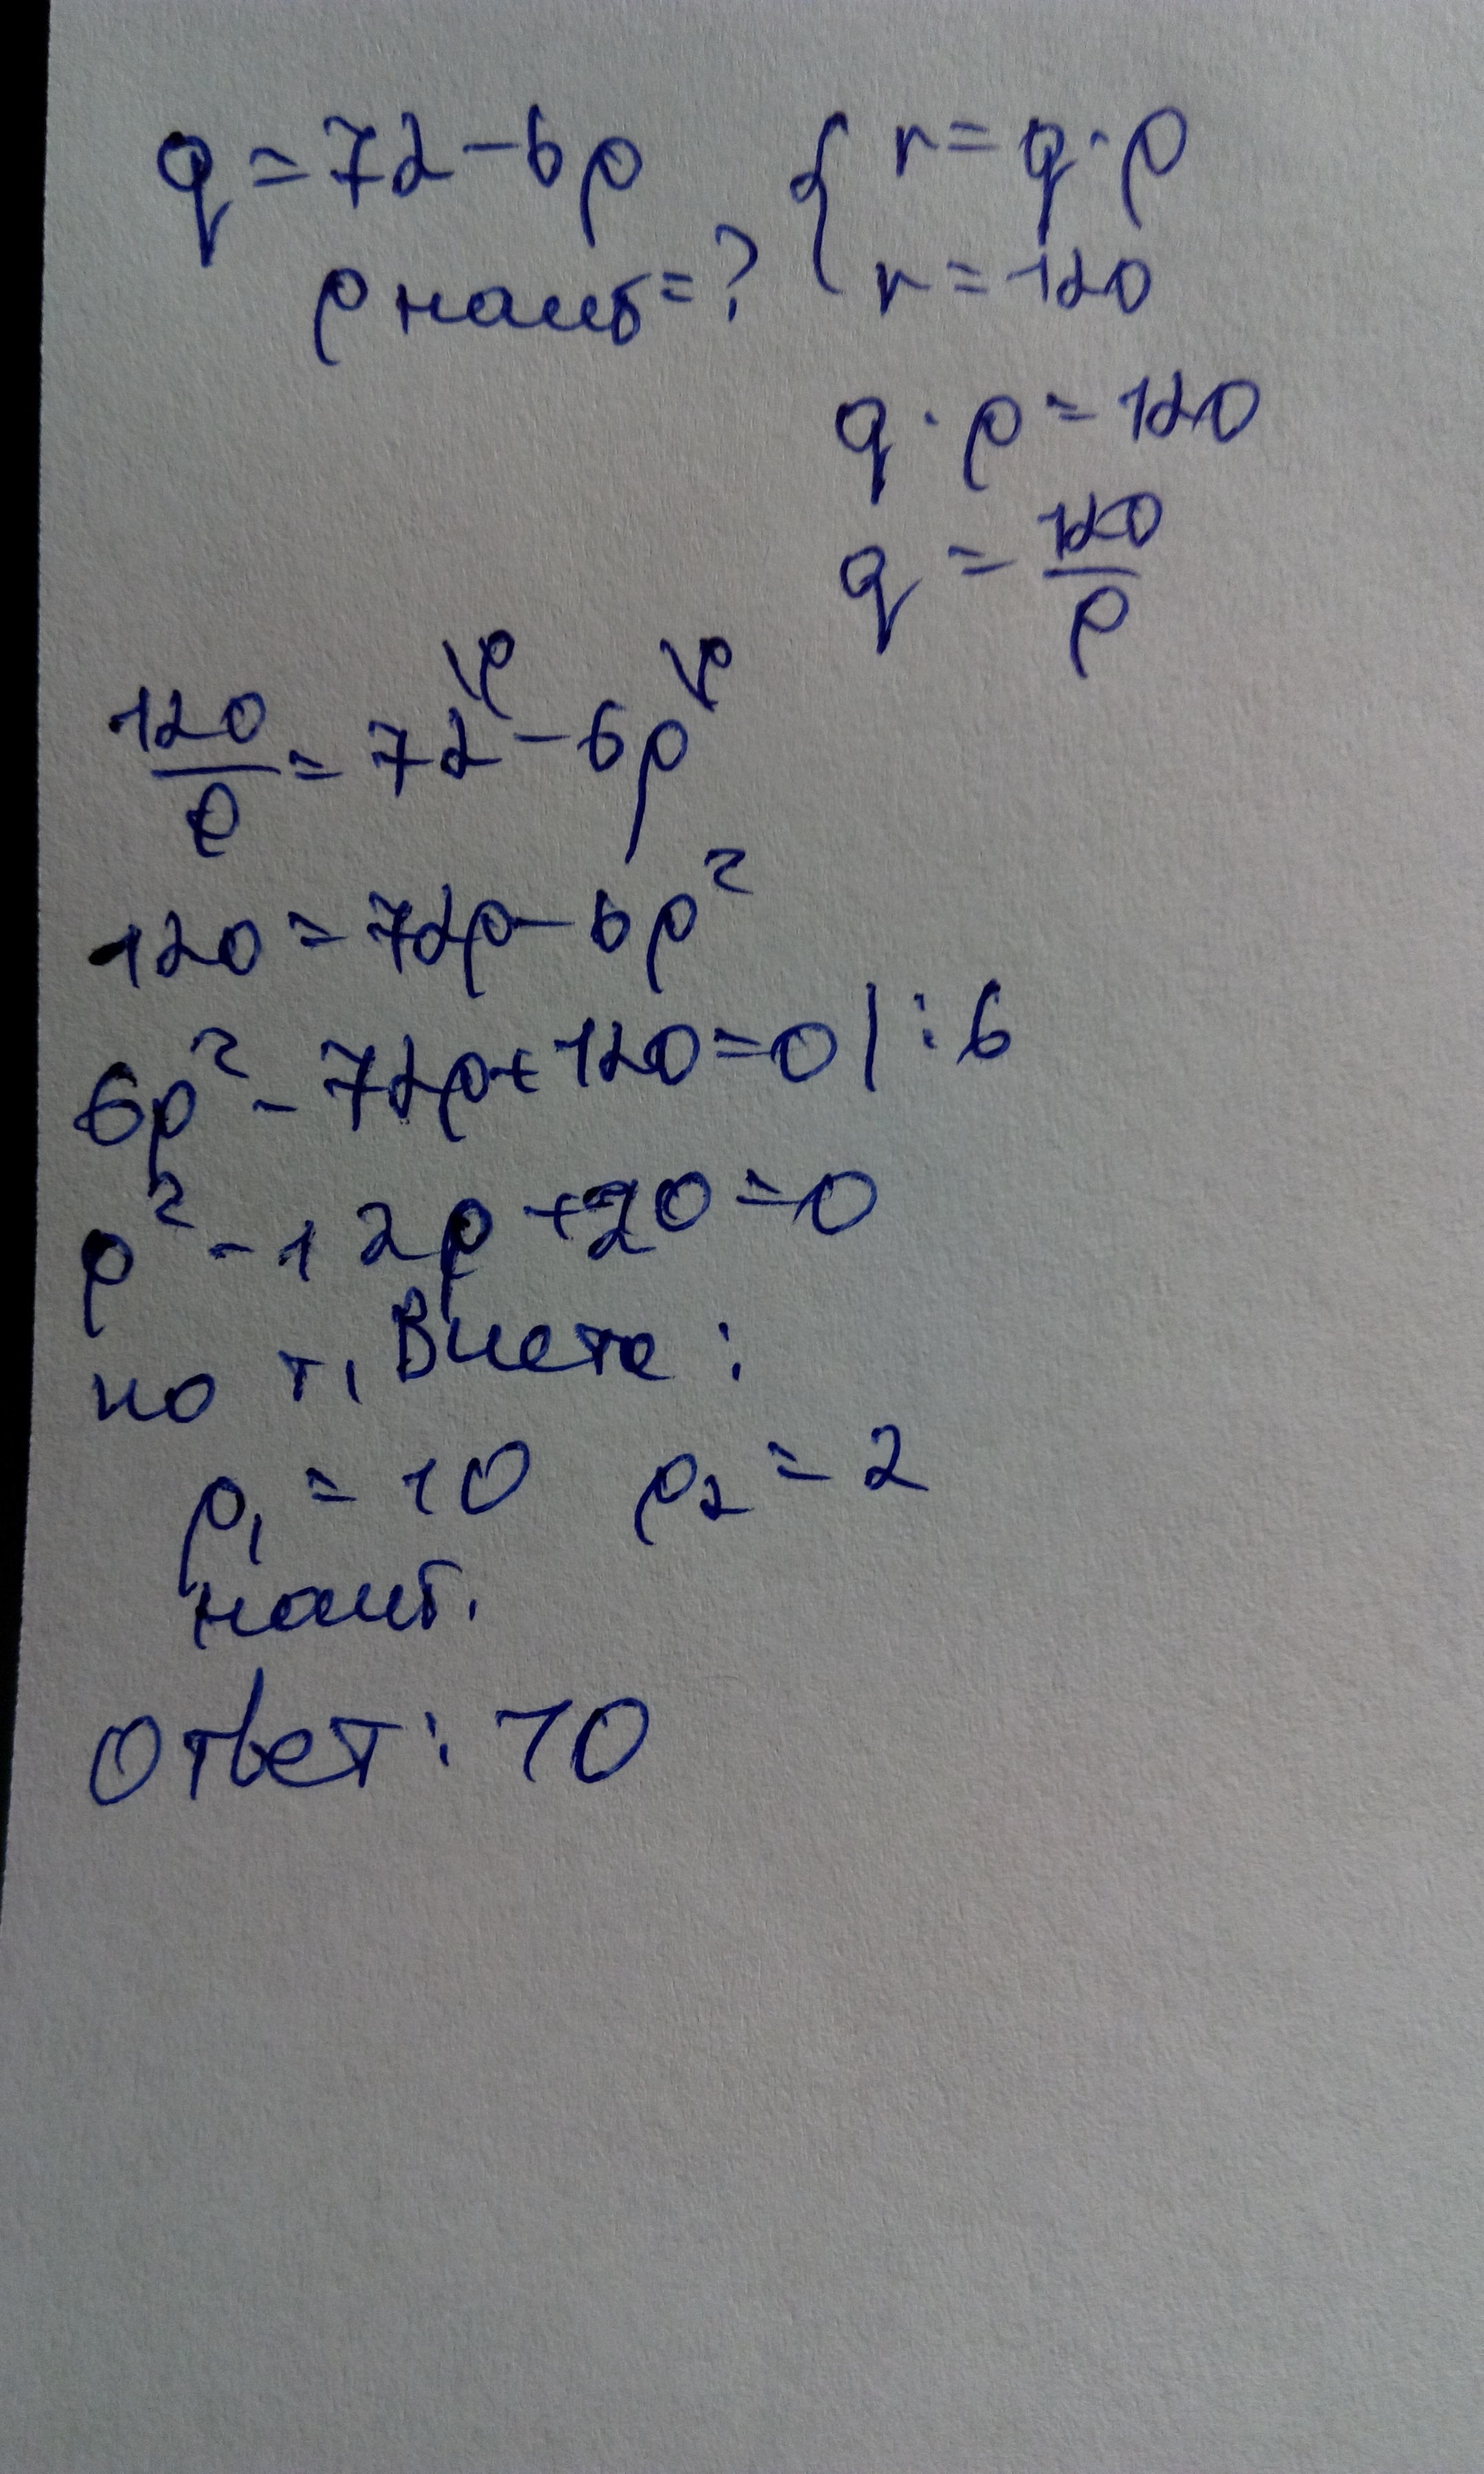 q = 72 - 6p
p наиб = ?
{ r = q · p
r = 120
q · p = 120
q = 120/p
120/p = 72\p - 6p\p
120 = 72p - 6p²
6p² - 72p + 120 = 0 | : 6
p² - 12p + 20 = 0
по т. Виета :
p₁ = 10 p₂ = 2
наиб.
Ответ: 10